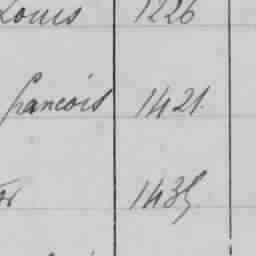 Louis 1226
francois 1421
1435